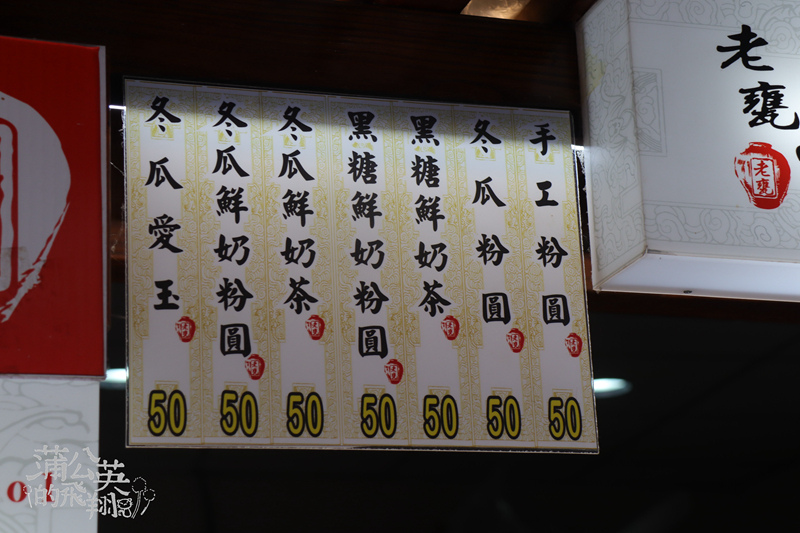 手工粉圓 50
冬瓜粉圓 50
黑糖鮮奶茶 50
黑糖鮮奶粉圓 50
冬瓜鮮奶茶 50
冬瓜鮮奶粉圓 50
冬瓜愛玉 50
老甕
老甕
蒲公英
的飛翔